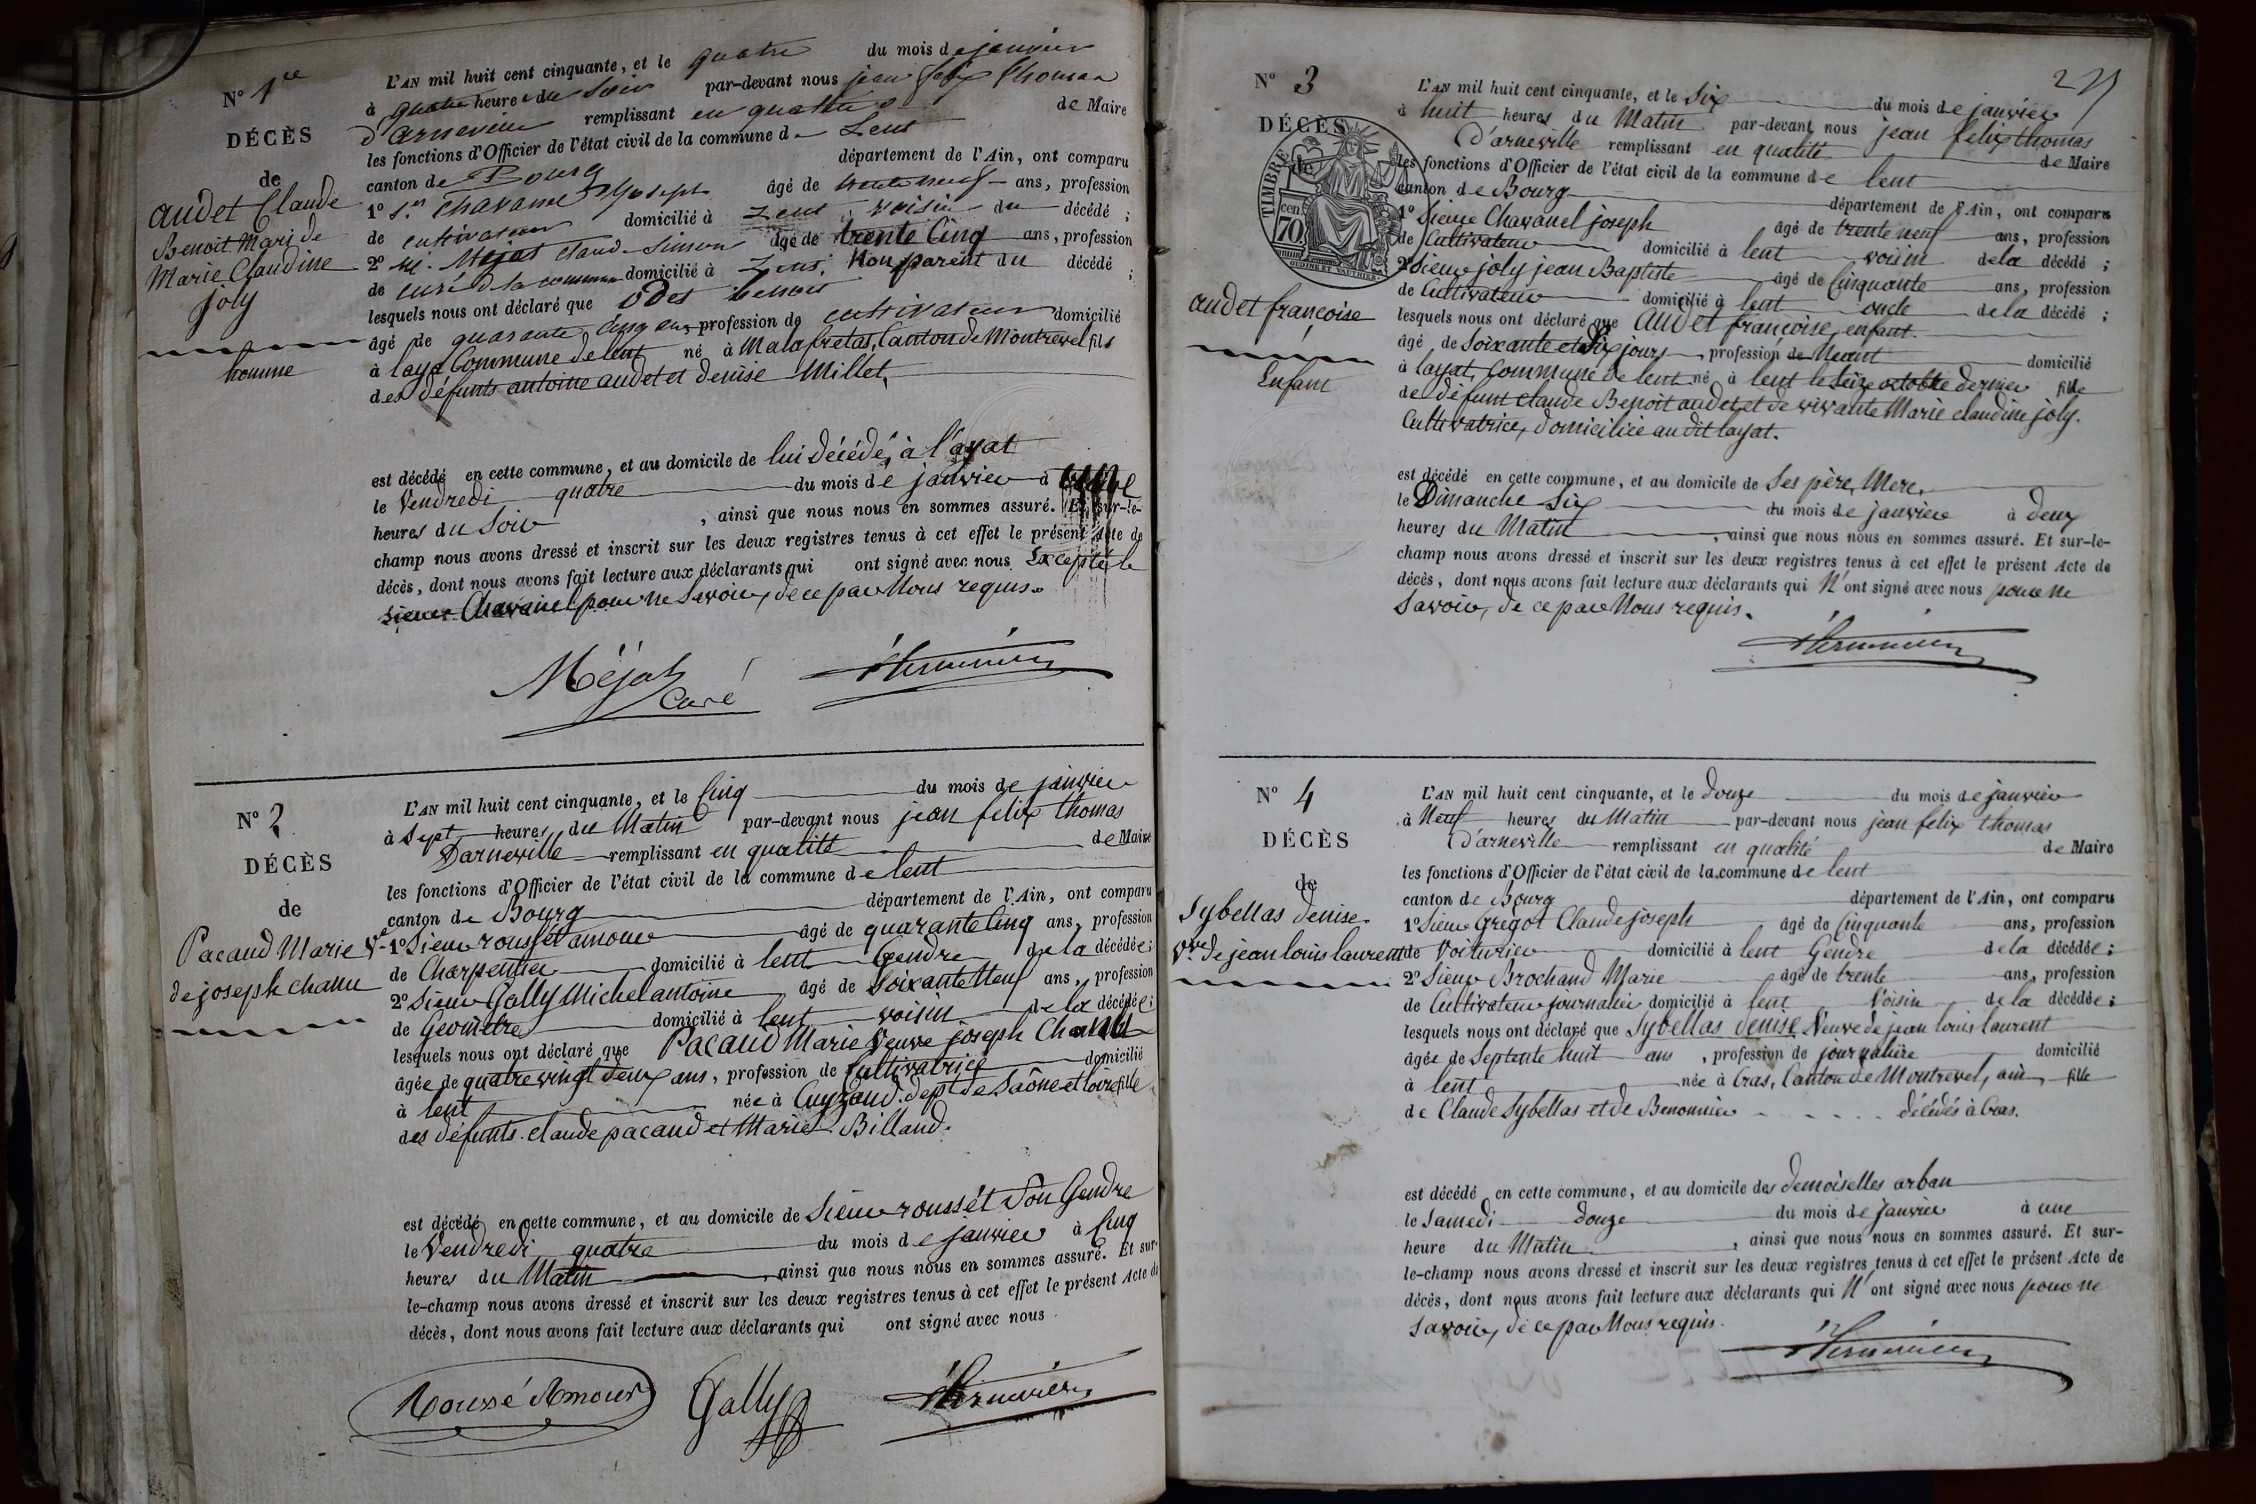 N° 1er
DÉCÈS
de
audet Claude
Benoit. Mari de
Marie Claudine
joly
homme
L'AN mil huit cent cinquante, et le quatre du mois de janvier
à quatre heures du soir par-devant nous jean felix thomas
d'arnevieu remplissant en qualité de Maire
les fonctions d'Officier de l'état civil de la commune de Lent
canton de Bourg département de l'Ain, ont comparu
1° Sr. Chavanel joseph âgé de trente neuf ans, profession
de cultivateur domicilié à Lent voisin du décédé ;
2° Mr. Méjat Claude Simon âgé de trente Cinq ans, profession
de curé de la commune domicilié à Lent, Non parent du décédé ;
lesquels nous ont déclaré que odet benoit
âgé de quarante cinq ans profession de cultivateur domicilié
à layat Commune de lent né à Malafretas, Canton de Montrevel fils
des défunts antoine audet et denise Millet,
est décédé en cette commune, et au domicile de lui décédé, à l'ayat
le Vendredi quatre du mois de janvier à
heures du Soir , ainsi que nous nous en sommes assuré. Et sur-le-
champ nous avons dressé et inscrit sur les deux registres tenus à cet effet le présent Acte de
décès, dont nous avons fait lecture aux déclarants qui ont signé avec nous Excepté le
sieur Chavanel pour ne Savoir, de ce par Nous requis.
Méjat
Curé
N° 2
DÉCÈS
de
Pacaud Marie Ve
de joseph chanu
L'AN mil huit cent cinquante, et le Cinq du mois de janvier
à Sept heures du Matin par-devant nous jean felix thomas
Darneville remplissant en qualité de Maire
les fonctions d'Officier de l'état civil de la commune de lent
canton de Bourg département de l'Ain, ont comparu
1° Sieur roussét amour âgé de quarante Cinq ans, profession
de Charpentier domicilié à lent Gendre de la décédée ;
2° Sieur Gally Michel antoine âgé de Soixante Neuf ans, profession
de Geomètre domicilié à lent voisin de la décédée ;
lesquels nous ont déclaré que Pacaud Marie Veuve joseph Chanu
âgée de quatre vingt deux ans, profession de Cultivatrice domicilié
à lent née à Cuyzaud. dept de Saône et loire fille
des défunts. claude pacaud et Marie Billaud.
est décédé en cette commune, et au domicile de Sieur roussét Son Gendre
le Vendredi quatre du mois de janvier à Cinq
heures du Matin , ainsi que nous nous en sommes assuré. Et sur-
le-champ nous avons dressé et inscrit sur les deux registres tenus à cet effet le présent Acte de
décès, dont nous avons fait lecture aux déclarants qui ont signé avec nous.
Roussé Amour Gally
N° 3
DÉCÈS
de
TIMBRE
cen.
70.
OUDINÉ ET VAUTHIER
audet françoise
Enfant
L'AN mil huit cent cinquante, et le Six du mois de janvier
à huit heures du Matin par-devant nous jean felix thomas
d'arneville remplissant en qualité de Maire
les fonctions d'Officier de l'état civil de la commune de lent
canton de Bourg département de l'Ain, ont comparu
1° Sieur Chavanel joseph âgé de trente neuf ans, profession
de Cultivateur domicilié à lent voisin de la décédé ;
2° Sieur joly jean Baptiste âgé de Cinquante ans, profession
de Cultivateur domicilié à lent oncle de la décédé ;
lesquels nous ont déclaré que audet françoise, enfant.
âgé de Soixante et Six jours profession de Neant domicilié
à layat, Commune de lent né à lent le Seize octobre dernier fille
de défunt claude Benoit audet et de vivante Marie claudine joly.
Cultivatrice, domiciliée au dit layat.
est décédé en cette commune, et au domicile de Ses père, Mere,
le Dimanche Six du mois de janvier à deux
heures du Matin , ainsi que nous nous en sommes assuré. Et sur-le-
champ nous avons dressé et inscrit sur les deux registres tenus à cet effet le présent Acte de
décès, dont nous avons fait lecture aux déclarants qui N'ont signé avec nous pour ne
Savoir, de ce par Nous requis.
N° 4
DÉCÈS
de
Sybellas denise.
Vve de jean louis laurent
L'AN mil huit cent cinquante, et le douze du mois de janvier
à Neuf heures du Matin par-devant nous jean felix thomas
d'arneville remplissant en qualité de Maire
les fonctions d'Officier de l'état civil de la commune de lent
canton de Bourg département de l'Ain, ont comparu
1° Sieur Gregot Claude joseph âgé de Cinquante ans, profession
de Voiturier domicilié à lent Gendre de la décédée ;
2° Sieur Brochand Marie âgé de trente ans, profession
de Cultivateur journalier domicilié à lent Voisin de la décédée ;
lesquels nous ont déclaré que Sybellas denise Veuve de jean louis laurent
âgée de Septente huit ans , profession de journaliere domicilié
à lent née à Cras, Canton de Montrevel, ain, fille
de Claude Sybellas et de Benonnier . . . . . décédés à Cras.
est décédé en cette commune, et au domicile des demoiselles arban
le Samedi douze du mois de janvier à une
heure du Matin , ainsi que nous nous en sommes assuré. Et sur-
le-champ nous avons dressé et inscrit sur les deux registres tenus à cet effet le présent Acte de
décès, dont nous avons fait lecture aux déclarants qui N'ont signé avec nous pour ne
Savoir, de ce par Nous requis.